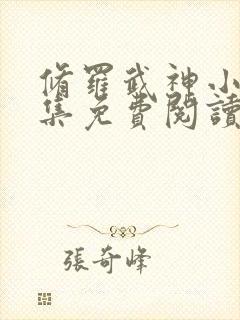 脩羅武神小
集免費閱讀
張奇峰